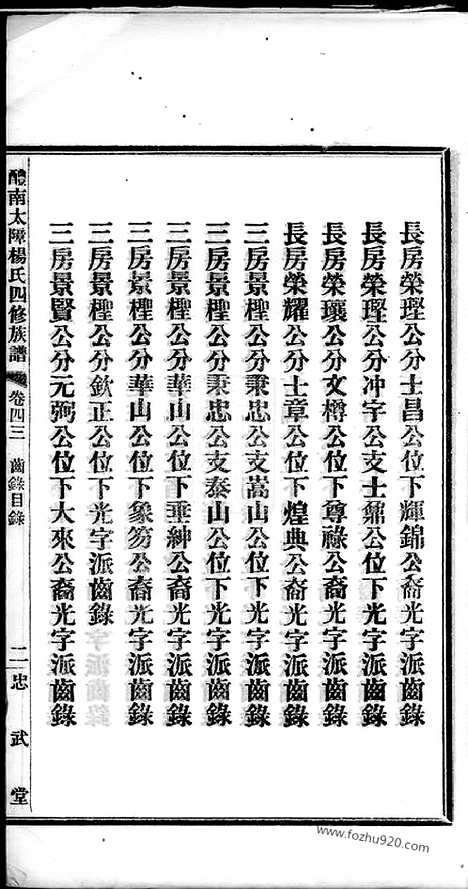 長房榮瑆公分士昌公位下輝錦公裔光字派齒錄
長房榮瑆公分冲宇公支士鼐公位下光字派齒錄
長房榮瓖公分文樽公位下尊祿公裔光字派齒錄
長房榮耀公分士章公位下煌典公裔光字派齒錄
三房景檉公分秉忠公支嵩山公位下光字派齒錄
三房景檉公分秉忠公支泰山公位下光字派齒錄
三房景檉公分華山公位下垂紳公裔光字派齒錄
三房景檉公分華山公位下象笏公裔光字派齒錄
三房景檉公分欽正公位下光字派齒錄
三房景賢公分元弼公位下大來公裔光字派齒錄
醴南太障楊氏四修族譜 卷四三 齒錄目錄 二 忠武堂
www.fozhu920.com